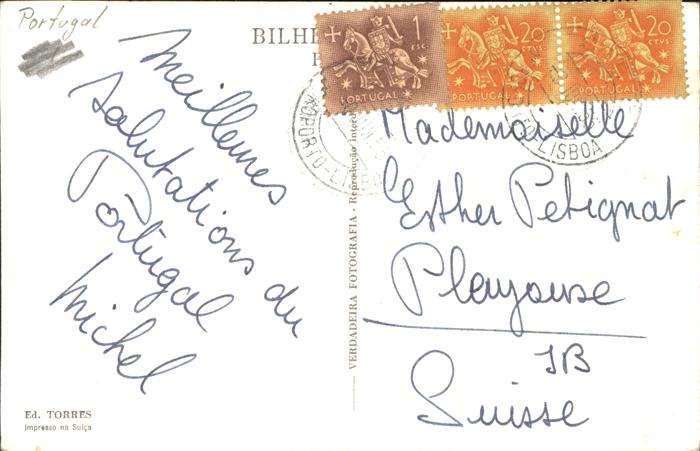 Portugal
BILHE
1
ESC
PORTUGAL
20
CTVS
PORTUGAL
20
CTVS
PORTUGAL
LISBOA
Meilleures
salutations du
Portugal
Michel
VERDADEIRA FOTOGRAFIA - Reprodução interd
Mademoiselle
Esther Petignat
Pleujouse
JB
Suisse
Ed. TORRES
Impresso na Suíça